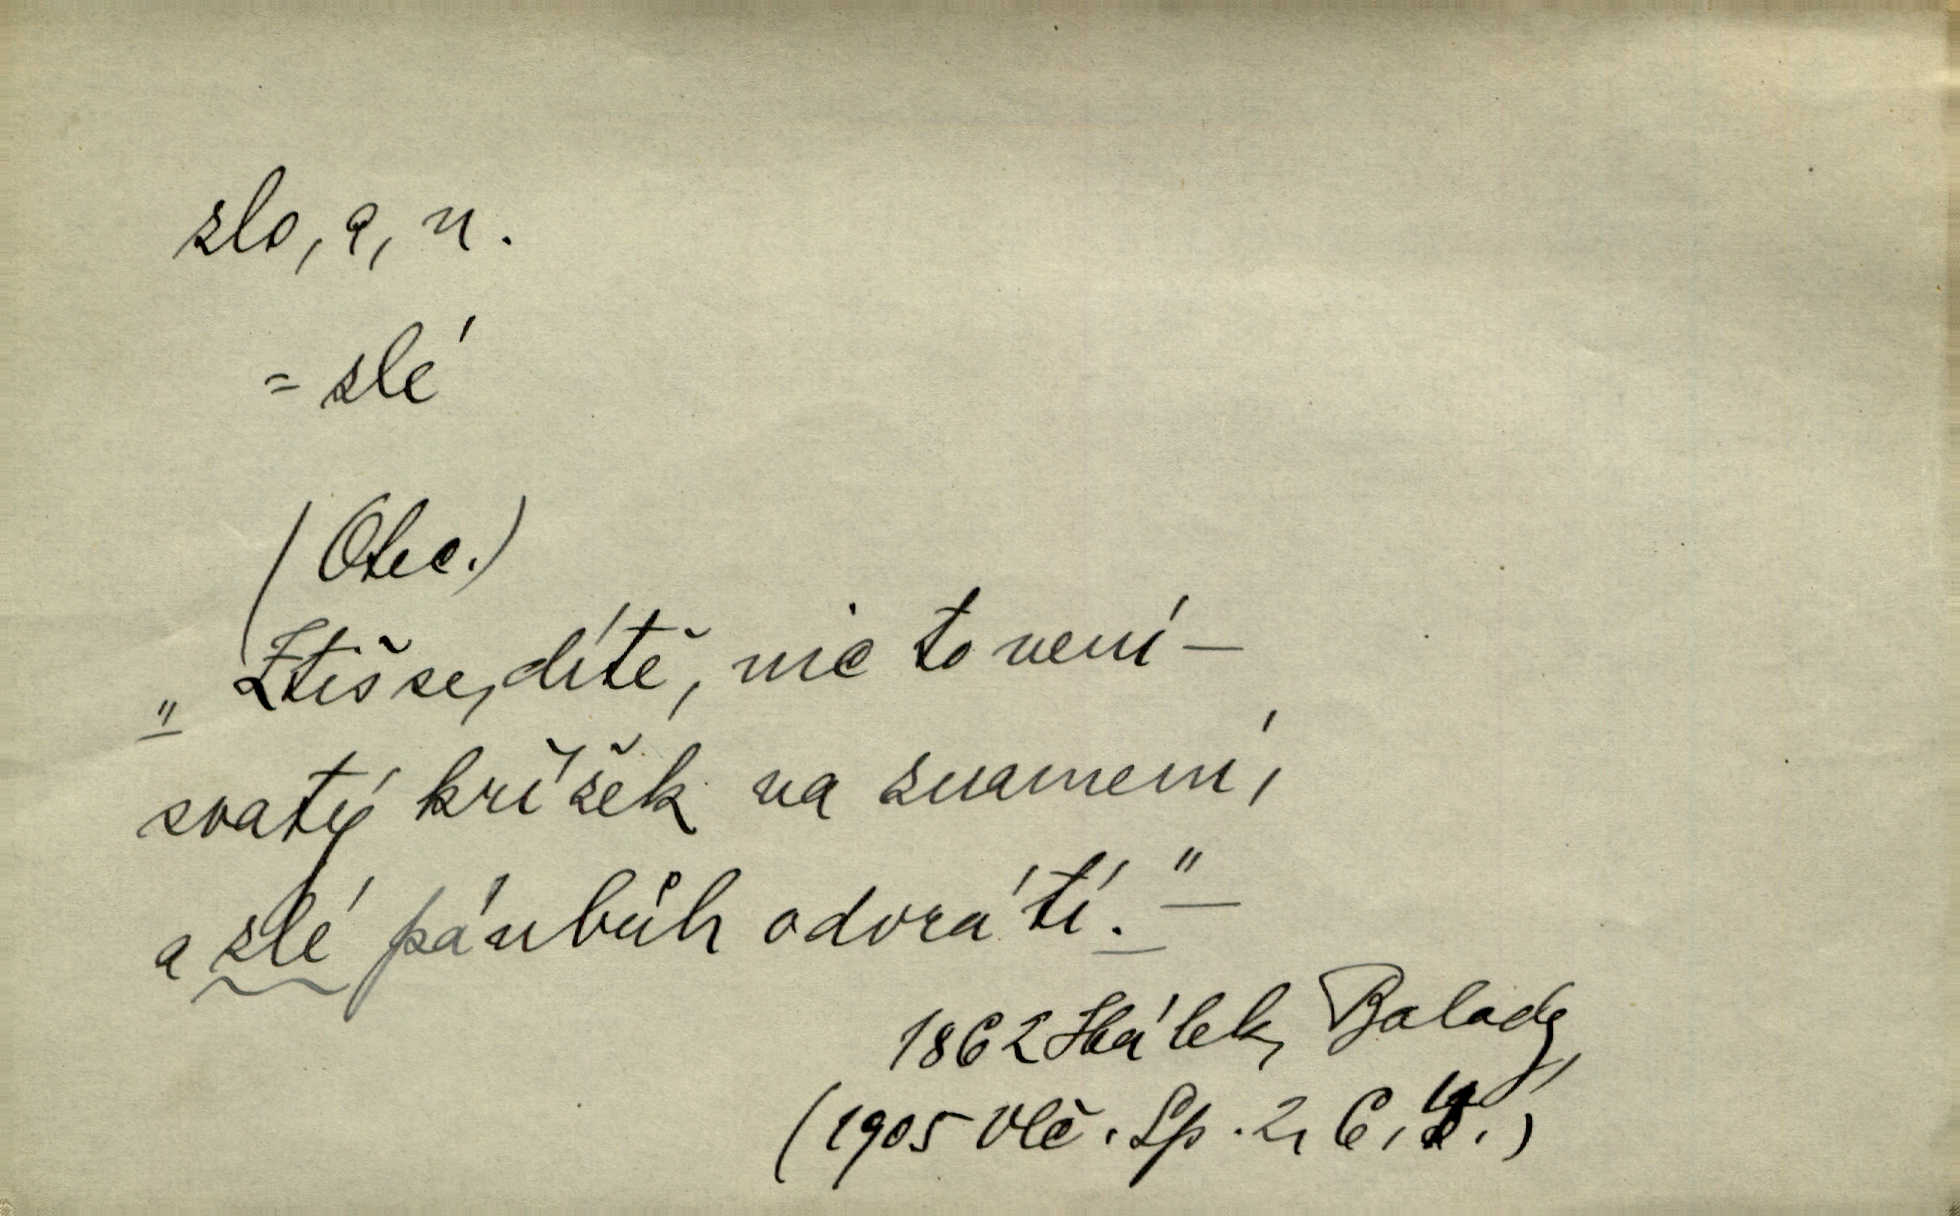 zlo, a, n.
= zlé
(Otec.)
„Ztiš se, dítě, nic to není –
svatý křížek na znamení,
a zlé pánbůh odvrátí.“ –
1862 Hálek, Balady,
(1905 Vlč. Sp. 2, 6,